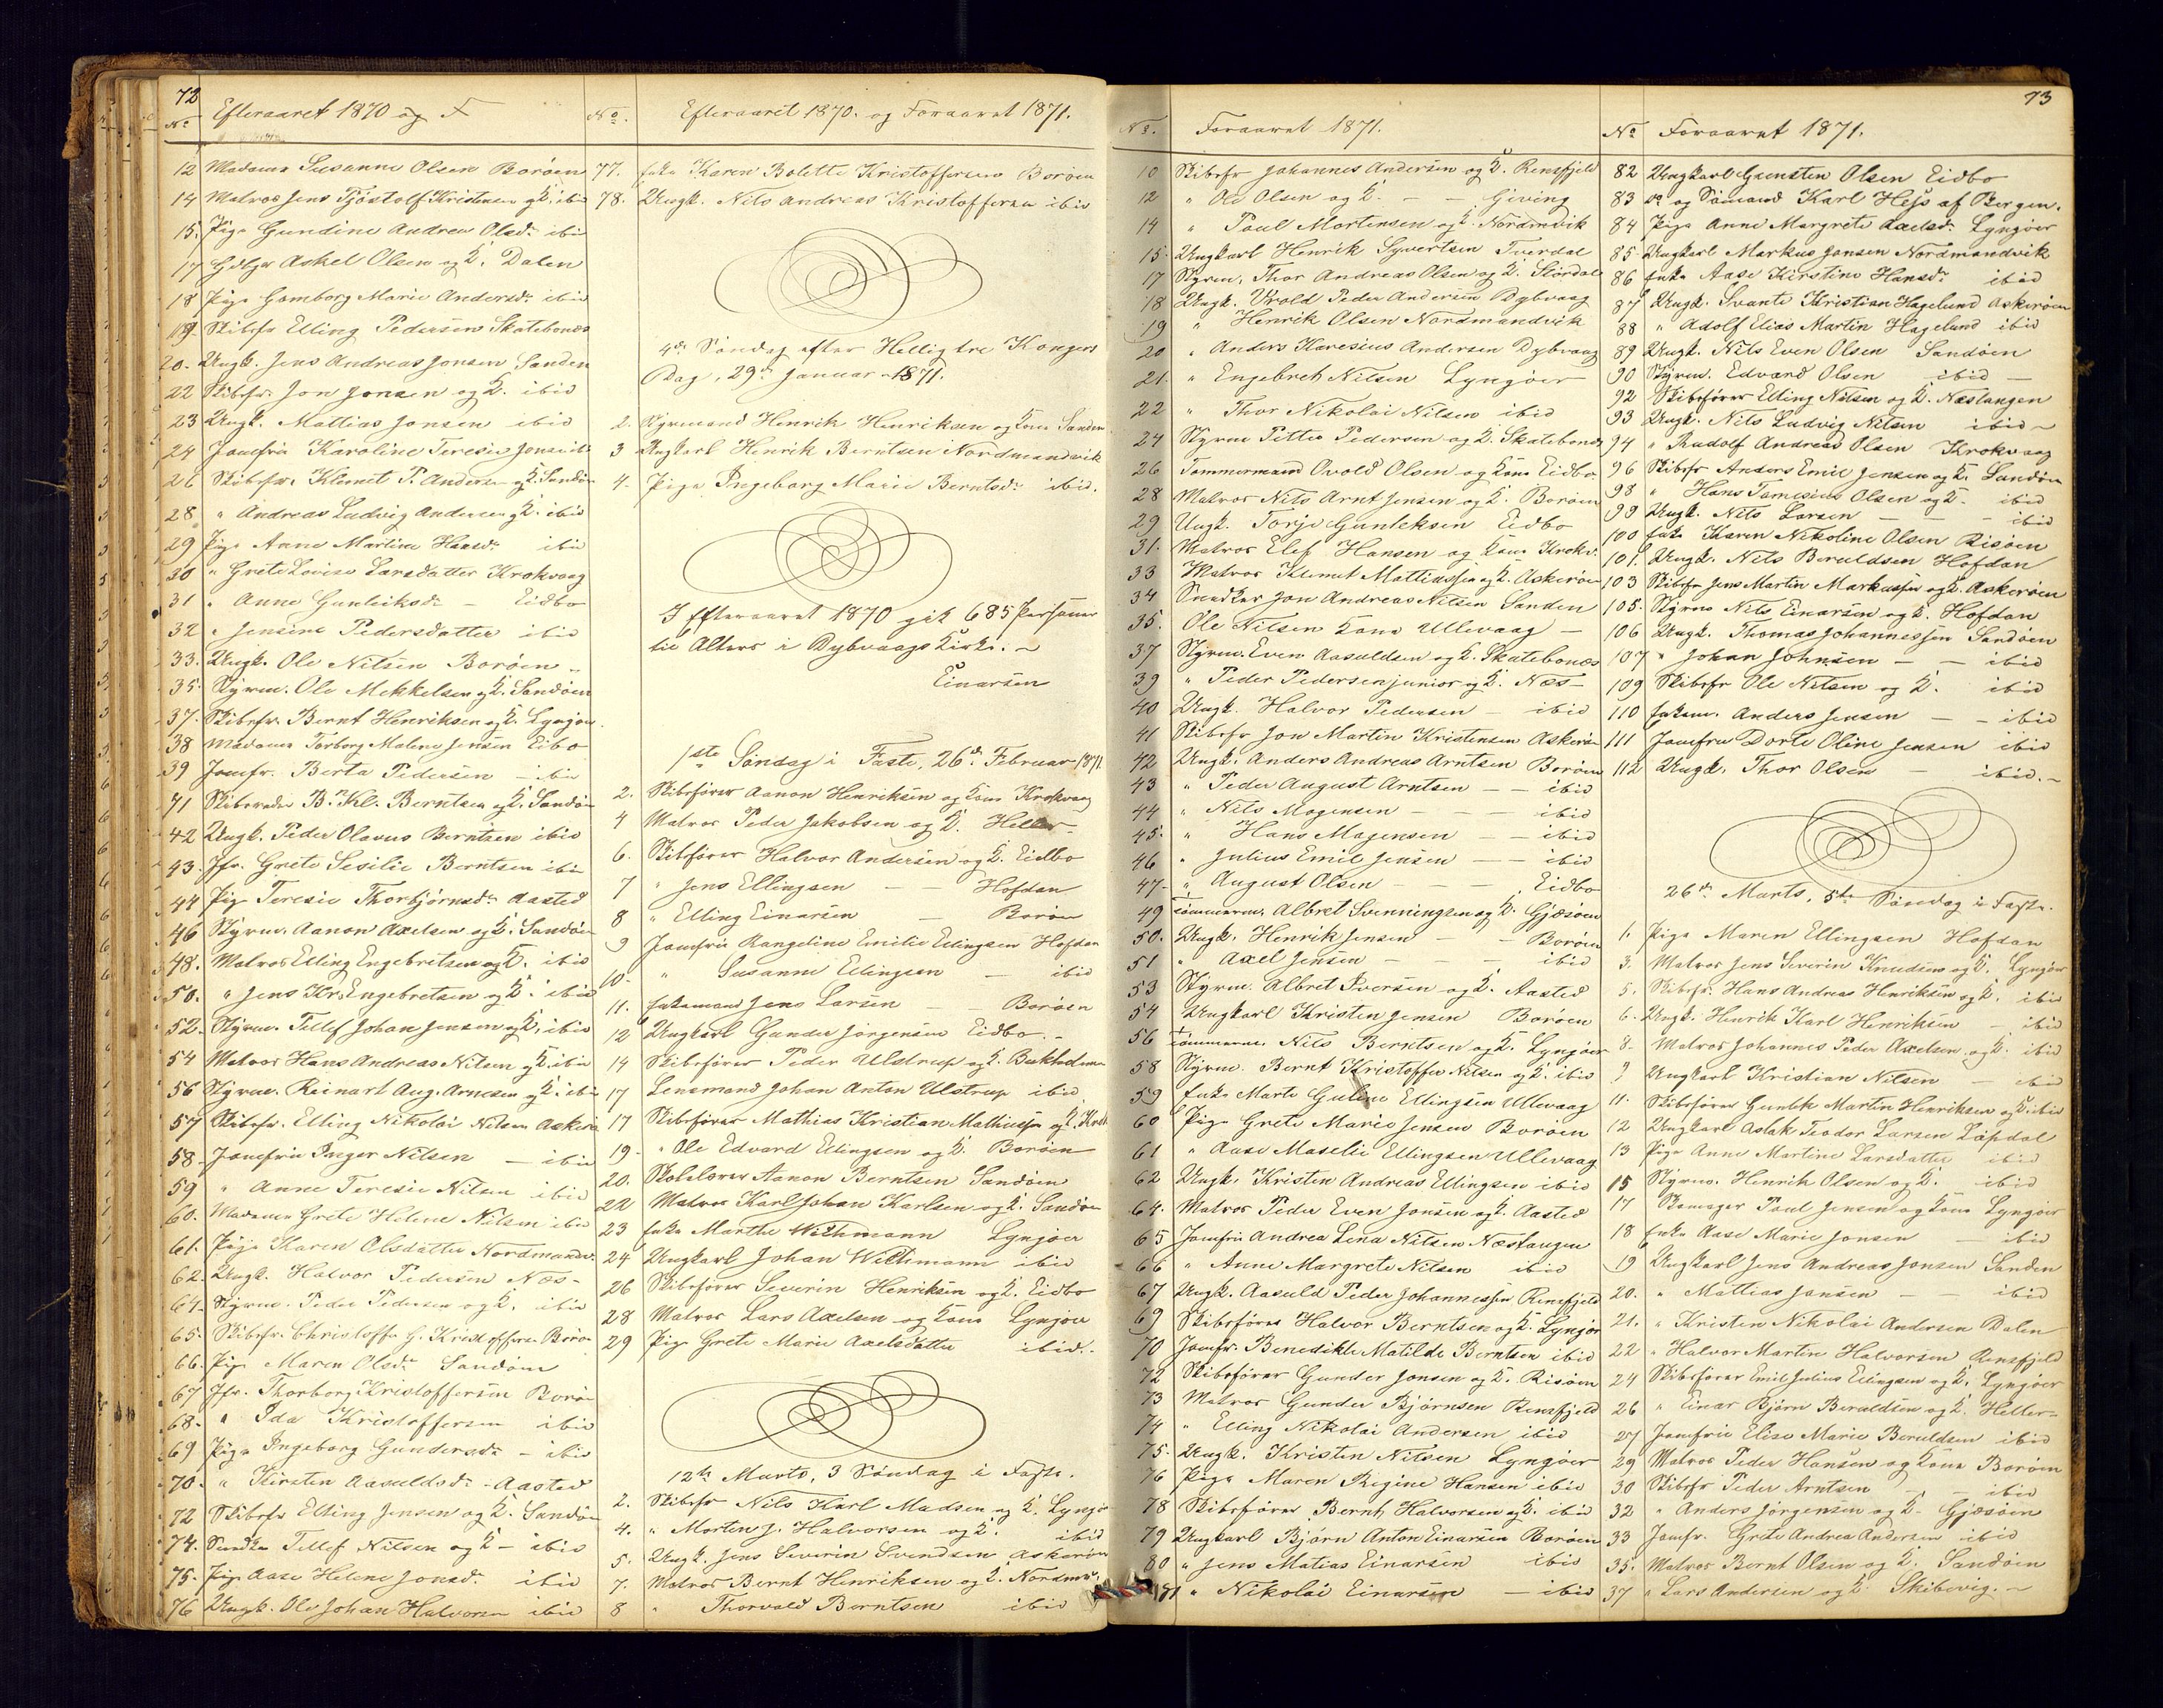 72
No Efteraaret 1870 og F
12 Madame Susanne Olsen Borøen
14 Matros Jens Tjøstolf Kristensen og K. ibid
15. Pige Gundine Andrea Olsd. ibid
17 Gdbgr Askel Olsen og K. Dalen
18 Pige Gomborg Marie Andersd. ibid
19 Skibsfr Elling Pedersen Skatebonæs
20. Ungk. Jens Andreas Jonsen Sanden
22 Skibsfr. Jon Jonsen og K. ibid
23 Ungk. Mattias Jonsen ibid
24 Jomfru Karoline Teresie Jonsen ib
26 Skibsfr. Klemet P. Andersen og K. Sandøen
28 " Andreas Ludvig Andersen og K. ibid
29 Pige Anne Martine Hansd. ibid
30 " Grete Lovise Larsdatter Krokvaag
31 " Anne Gunleiksd. – Eidbo
32 " Jensine Pedersdatter ibid
33. Ungk. Ole Nilsen Borøen
35. Styrm. Ole Mekkelsen og K. Sandøen
37. Skibsfr. Bernt Henriksen og K. Lyngøer
38 Madame Torborg Malene Jensen Eibo
39 Jomfr. Berta Pedersen – ibid
41 Skibsreder B. Kl. Berntsen og K. Sandøen
42 Ungk. Peder Olavus Berntsen ibid
43. Jfr. Grete Sesilie Berntsen ibid
44 Pige Teresie Thorbjørnsd. Aasted
46 Styrm. Aanon Axelsen og K. Sandøen
48. Matros Elling Engebretsen og K. ibid
50. " Jens Kr. Engebretsen og K. ibid
52. Styrm. Tellef Johan Jensen og K. ibid
54 Matros Hans Andreas Nilsen og K. ibid
56 Styrm. Reinart Aug. Arnesen og K. ibid
57 Skibsfr. Elling Nikolai Nilsen Askerøen
58. Jomfru Inger Nilsen – ibid
59 " Anne Teresie Nilsen ibid
60. Madame Grete Helene Nilsen ibid
61. Pige Karen Olsdatter Nordmandv.
62. Ungk. Halvor Pedersen Næs
64. Styrm. Peder Pedersen og K. ibid
65. Skibsfr. Christoffer G. Kristoffersen Borøen
66. Pige Maren Olsd. Sandøen
67 Jfr. Thorborg Kristoffersen Borøen
68. " Ida Kristoffersen ibid
69 Pige Ingeborg Gundersd. – ibid
70. " Kirsten Aasuldsd. – Aasted
72 Skibsfr Elling Jensen og K. Sandøen
74. Snedker Tellef Nilsen og K – ibid
75. Pige Aase Helene Jonsd. ibid
76 Ungk. Ole Johan Halvorsen ibid
No. Efteraaret 1870. og Foraaret 1871.
77. Enke Karen Bolette Kristoffersen Borøen
78. Ungk. Nils Andreas Kristoffersen ibid
4de Søndag efter Hellig tre Kongers
Dag, 29de Januar 1871.
2. Styrmand Henrik Henriksen og Kone Sanden
3 Ungkarl Henrik Berntsen Nordmandvik
4. Pige Ingeborg Marie Berntsd. ibid.
I Efteraaret 1870 gik 685 Personer
til Alters i Dybvaags Kirke. –
Einarsen
1ste Søndag i Faste, 26de Februar 1871
2. Skibsfører Aanon Henriksen og Kone Krokvaag
4 Matros Peder Jakobsen og K. Heller
6. Skibsfører Halvor Andersen og K. Eidbo
7 " Jens Ellingsen – – Hofdan
8 " Elling Einarsen – Borøen
9 Jomfru Rangeline Emilie Ellingsen Hofdan
10. " Susanne Ellingsen – ibid
11. Enkemand Jens Larsen – Borøen
12 Ungkarl Gunder Jørgensen Eidbo. –
14 Skibsfører Peder Ulstrup og K. Bukholmen
17 Lensmand Johan Anton Ulstrup ibid.
17 Skibsfører Mathias Kristian Mathiassen og K. Krok
19. " Ole Edvard Ellingsen og K. Borøen
20. Skolelærer Aanon Berntsen Sandøen
22 Matros Karl Johan Karlsen og K. Sandøen
23 Enke Marthe Wethmann Lyngøer
24 Ungkarl Johan Wethmann ibid
26 Skibsfører Severin Henriksen og K. Eidbo
28 Matros Lars Axelsen og Kone Lyngøer
29 Pige Grete Marie Axelsdatter ibid.
12te Marts, 3 Søndag i Faste.
2. Skibsfr Nils Karl Madsen og K. Lyngøer
4. " Morten J. Halvorsen og K. ibid
5. Ungk. Jens Severin Svendsen Askerøen
7. Matros Bernt Henriksen og K. Nordmv.
8 " Thorvald Berntsen ibid
No. Foraaret 1871.
10 Skibsfr Johannes Andersen og K. Rensfjeld
12 " Ole Olsen og K. – – Giving
14 " Poul Mortensen og K. Nordmdvik
15. Ungkarl Henrik Syvertsen Tverdal
17 Styrm. Thor Andreas Olsen og K. Stordal
18 Ungk. Vrold Peder Andersen Dybvaag
19 " Henrik Olsen Nordmandvik
20 " Anders Haresius Andersen Dybvaag
21. " Engebret Nilsen Lyngøer
22 " Thor Nikolai Nilsen ibid
24 Styrm Petter Pedersen og K. Skatebonæs
26 Tømmermand Ovold Olsen og Kone Eidbo
28 Matros Nils Arnt Jensen og K. Borøen
29 Ungk. Torje Gunleksen Eidbo
31. Matros Elef Hansen og Kone Krokv.
33 Matros Klemet Mattiassen og K. Askerøen
34 Snedker Jon Andreas Nilsen Sanden
35. Ole Nilsen Kone Ullevaag –
37 Styrm. Even Aasuldsen og K. Skatebonæs
39 " Peder Pedersen junior og K. Næs
40 Ungk. Halvor Pedersen – ibid
41 Skibsfr Jon Martin Kristensen Askerøen
42 Ungk. Anders Andreas Arntsen Borøen
43 " Peder August Arntsen – – ibid
44 " Nils Mogensen – – – ibid
45. " Hans Mogensen – – ibid
46 " Julius Emil Jensen – – ibid
47. " August Olsen – – – Eidbo
49 Tømmerm. Albret Svenningsen og K. Gjæsøen
50. Ungk. Henrik Jensen – – Borøen
51 " Axel Jensen – – – ibid
53 Styrm. Albret Iversen og K. Aasted
54 Ungkarl Kristen Jensen Borøen
56 Tømmerm. Nils Berntsen og K. Lyngøer
58 Styrm. Bernt Kristoffer Nilsen og K. ibid
59 Enke Marte Guline Ellingsen Ullevaag
60 Pige Grete Marie Jensen Borøen
61 " Aase Maselie Ellingsen Ullevaag
62 Ungk. Kristen Andreas Ellingsen ibid
64. Matros Peder Even Jonsen og K. Aasted
65 Jomfru Andrea Lena Nilsen Næstangen
66 " Anne Margrete Nilsen ibid
67 Ungk. Aasuld Peder Johannessen Rensfjeld
69 Skibsfører Halvor Berntsen og K. Lyngør
70 Jomfr. Benedikte Matilde Berntsen ibid
72 Skibsfører Gunder Jonsen og K. Risøen
73 Matros Gunder Bjørnsen Rensfjeld
74 " Elling Nikolai Andersen ibid
75. Ungk. Kristen Nilsen Lyngøer
76 Pige Maren Regine Hansen ibid
78 Skibsfører Bernt Halvorsen og K. ibid
79 Ungkarl Bjørn Anton Einarsen Borøen
80 " Jens Matias Einarsen ibid
" Nikolai Einarsen – ibid
73
No Foraaret 1871.
82 Ungkarl Gunsten Olsen Eidbo
83 do og Sømand Karl Hess af Bergen.
84 Pige Anne Margrete Axelsd. Lyngøer
85. Ungkarl Markus Jonsen Nordmandvik
86 Enke Aase Kirstine Hansd. ibid
87 Ungk. Svante Kristian Hagelund Askerøen
88 " Adolf Elias Martin Hagelund ibid
89 Ungk. Nils Even Olsen Sandøen
90 Styrm. Edvard Olsen ibid –
92 Skibsfører Elling Nilsen og K. Næstangen
93 Ungk. Nils Ludvig Nilsen ibid –
94 " Rudolf Andreas Olsen Krokvaag
96 Skibsfr Anders Emil Jensen og K. Sandøen
98 " Hans Tomesius Olsen og K. ibid
99 Ungk. Nils Larsen – – – ibid
100 Enke Karen Nikoline Olsen Risøen
101. Ungk. Nils Beruldsen Hofdan
103 Skibsfr Jens Martin Markussen og K. Askerøen
105. Styrm Nils Einarsen og K. Hofdan
106 Ungk. Thomas Johannessen Sandøen
107 " Johan Johnsen – – ibid
109 Skibsfr Ole Nilsen og K. ibid
110 Enkem. Anders Jensen – – ibid
111 Jomfru Dorte Oline Jensen ibid
112 Ungk. Thor Olsen – ibid. –
26de Marts, 5te Søndag i Faste.
1. Pige Maren Ellingsen Hofdan
3. Matros Jens Severin Knudsen og K. Lyngøer
5. Skibsfr. Hans Andreas Henriksen og K. ibid
6. Ungk. Henrik Karl Henriksen – ibid
8. Matros Johannes Peder Axelsen og K. ibid
9 Ungkarl Kristian Nilsen – ibid
11. Skibsfører Gunlek Martin Henriksen og K. ibid
12 Ungkarl Aslak Teodor Larsen Lapdal
13 Pige Anne Martine Larsdatter ibid
15 Styrm. Henrik Olsen og K. ibid
17 Skomager Poul Jensen og Kone Lyngøer
18 Enke Aase Marie Jonsen – ibid
19 Ungkarl Jens Andreas Jonsen Sanden
20. " Mattias Jonsen – – ibid
21. " Kristen Nikolai Andersen Dalen
22 " Halvor Martin Halvorsen Rensfjeld
24 Skibsfører Emil Julius Ellingsen og K. Lyngøer
26 " Einar Bjørn Beruldsen og K. Heller
27 Jomfru Elise Marie Beruldsen ibid
29 Matros Peder Hansen og Kone Borøen
30 Skibsfr Peder Arntsen – – ibid
32 " Anders Jørgensen og K. Gjæsøen
33 Jomfr. Grete Andrea Andersen ibid
35. Matros Bernt Olsen og K. Sandøen
37 " Lars Andersen og K. Skibevig. –